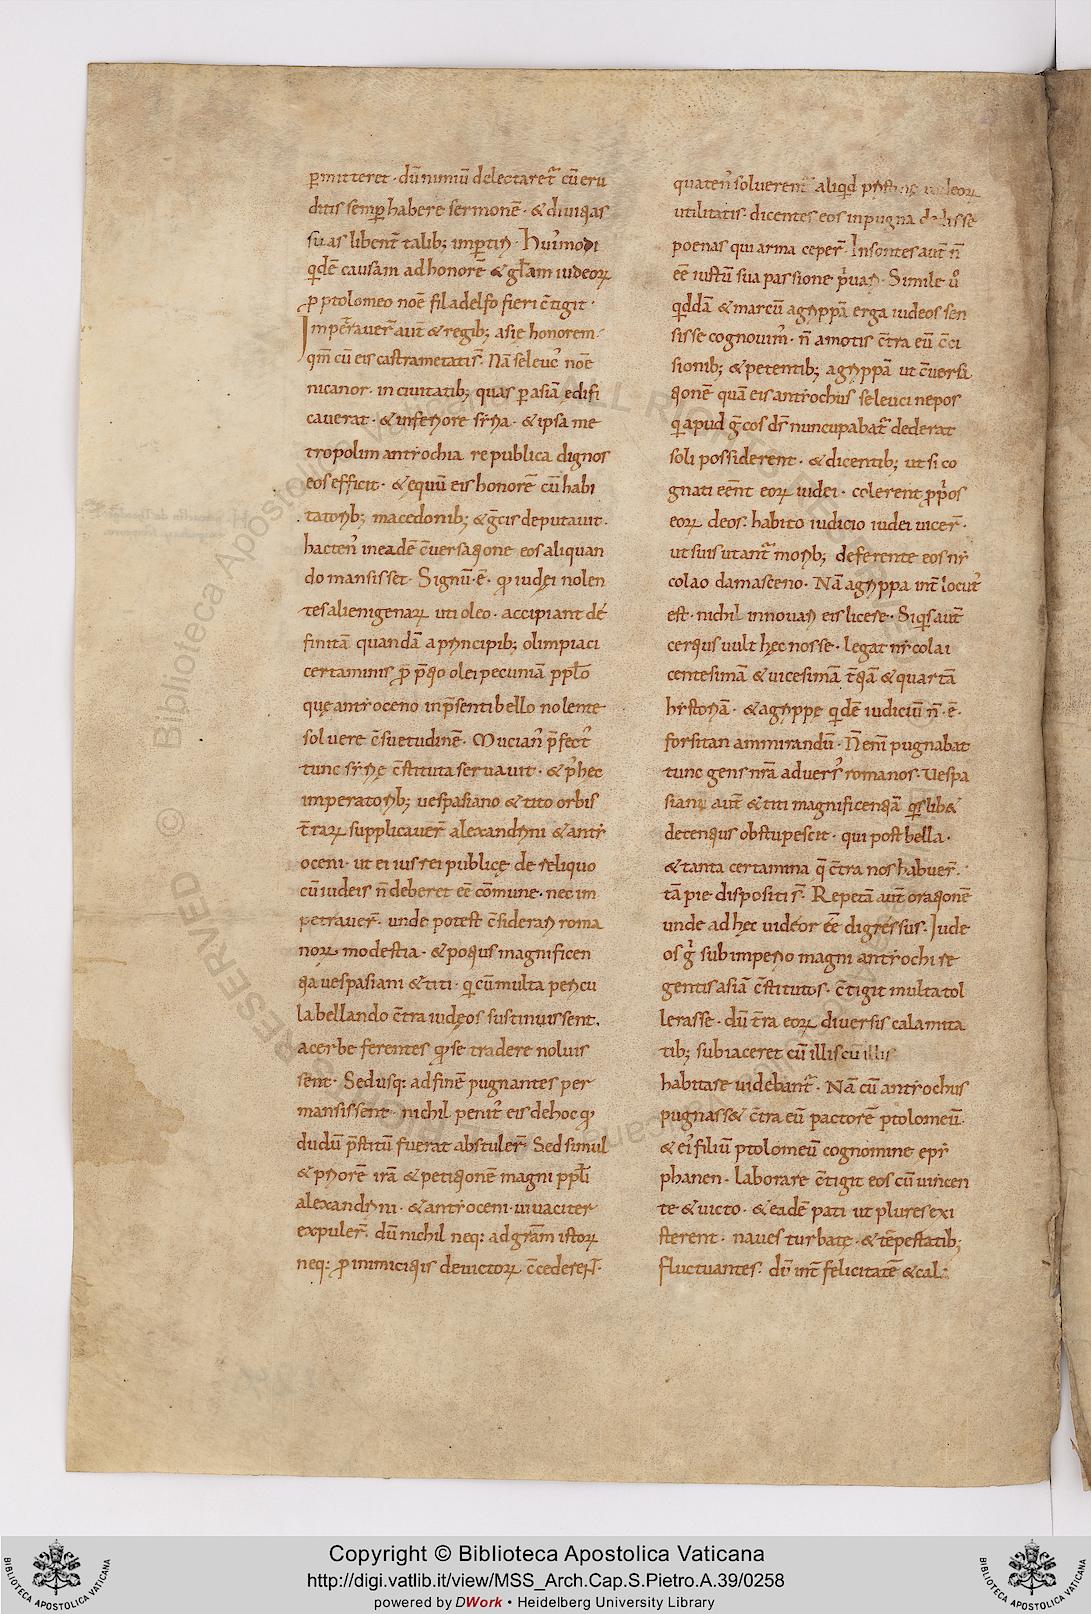 ꝑmitteret · dū nimiū delectaret᷒ cū eru
ditis semꝑ habere sermonē · & diuitias
suas libent̄ talib; imꝑtiri · Hui᷒modi
qdē causam ad honorē & gl̄am iudeoꝝ
ꝓ ptolomeo noē filadelfo fieri c̄tigit ·
Imperauer̄ aut̄ & regib; asie honorem ·
qm̄ cū eis castrametatis᷒ · Nā seleuc᷒ noē
nicanor · in ciuitatib; quas ꝑ asiā edifi
cauerat · & inferiore siria · & ipsa me
tropolim antiochia re publica dignos
eos efficit · & equū eis honorē cū habi
tatorib; macedonib; & ḡcis deputauit ·
hacten᷒ in eadē c̄uersatione eos aliquan
do mansisset · Signū · ē · qđ iudęi nolen
tes alienigenaꝝ uti oleo · accipiant dē
finitā quandā a principib; olimpiaci
certaminis ꝓ p̄tio olei pecuniā ppl̄o
quę antioceno in p̄senti bello nolente
soluere c̄suetudinē · Mucian᷒ p̄fect᷒
tunc sirię c̄stituta seruauit · & p᷒ hęc
imperatorib; uespasiano & tito orbis
t̄raꝝ supplicauer̄ alexandrini & anti
oceni · ut ei ius rei publicę de reliquo
cū iudeis n̄ deberet eē cōmune · nec im
petrauer̄ · unde potest c̄siderari roma
noꝝ modestia · & potius magnificen
tia uespasiani & titi · qi cū multa pericu
la bellando c̄tra iudęos sustinuissent ·
acerbe ferentes qđ se tradere noluis
sent · Sed usq: ad finē pugnantes per
mansissent · nichil penit᷒ eis de hoc qđ
dudū p̄stitū fuerat abstuler̄ · Sed simul
& priorē irā & petitionē magni ppl̄i
alexandrini · & antioceni uiuaciter
expuler̄ · dū nichil neq: ad gr̄am istoꝝ
neq: ꝓ inimicitiis deuictoꝝ c̄cederent ·
quaten᷒ soluerent᷒ aliqd pristinę iudeoꝝ
utilitatis · dicentes eos in pugna dedisse
poenas qui arma ceper̄ · Insontes aut̄ n̄
eē iustū sua passione p̄uari · Simile u᷒o
qddā & marcū agrippā erga iudeos sen
sisse cognouim᷒ · n̄ amotis c̄tra eū c̄ci
sionib; & petentib; agrippā ut c̄uersa
tionē quā eis antiochus seleuci nepos
qi apud ḡcos ds̄ nuncupabat᷒ dederat
soli possiderent · & dicentib; ut si co
gnati eēnt eoꝝ iudei · colerent ꝓprios
eoꝝ deos · habito iudicio iudei uicer̄ ·
ut suis utant᷒ morib; deferente eos ni
colao damasceno · Nā agrippa int̄ locut᷒
est · nichil innouari eis licere · Siqis aut̄
certius uult hęc nosse · legat nicolai
centesimā & uicesimā t̄tiā & quartā
historiā · & agrippe qidē iudiciū n̄ · ē ·
forsitan ammirandū · N̄ enī pugnabat
tunc gens nr̄a aduers᷒ romanos · Uespa
siani aut̄ & titi magnificentiā qislib&
decentius obstupescit · qui post bella ·
& tanta certamina q̄ c̄tra nos habuer̄ ·
tā pie dispositi s̄ · Repetā aut̄ orationē
unde ad hęc uideor eē digressus · Iude
os ḡ sub imperio magni antiochi re
gentis asiā c̄stitutos · c̄tigit multa tol
lerasse · dū t̄ra eoꝝ diuersis calamita
tib; subiaceret cū illis cū illis
habitare uidebant᷒ · Nā cū antiochus
pugnass& c̄tra eū pactorē ptolomeū ·
& ei᷒ filiū ptolomeū cognomine epi
phanen · laborare c̄tigit eos cū uincen
te & uicto · & eadē pati ut plures exi
sterent · naues turbatę · & tēpestatib;
fluctuantes · dū int̄ felicitatē & cal